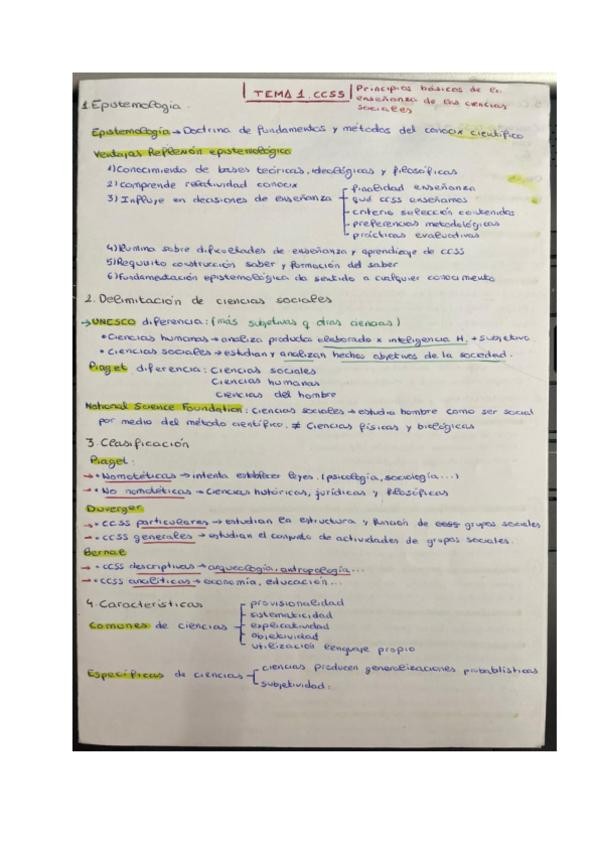 TEMA 1. CCSS Principios básicos de la
enseñanza de las ciencias
sociales
1. Epistemología.
Epistemología → Doctrina de fundamentos y métodos del conocix científico
Ventajas Reflexión epistemológica
1) Conocimiento de bases teóricas, ideológicas y filosóficas
2) Comprende relatividad conocix
3) Influye en decisiones de enseñanza
finalidad enseñanza
qué CCSS enseñamos
criterio selección contenidos
preferencias metodológicas
prácticas evaluativas
4) Ilumina sobre dificultades de enseñanza y aprendizaje de CCSS
5) Requisito construcción saber y formación del saber
6) Fundamentación epistemológica da sentido a cualquier conocimiento
2. Delimitación de ciencias sociales
→ UNESCO diferencia: (más subjetivas q otras ciencias)
• Ciencias humanas → analiza productos elaborado x inteligencia H. + subjetivo
• Ciencias sociales → estudian y analizan hechos objetivos de la sociedad.
Piaget diferencia: Ciencias sociales
Ciencias humanas
Ciencias del hombre
National Science Foundation: Ciencias sociales → estudia hombre como ser social
por medio del método científico. ≠ Ciencias físicas y biológicas
3. Clasificación
Piaget:
→ • Nomotéticas → intenta establecer leyes. (psicología, sociología...)
→ • No nomotéticas → Ciencias históricas, jurídicas y filosóficas
Duverger
→ • CCSS particulares → estudian la estructura y función de grupos sociales
→ • CCSS generales → estudian el conjunto de actividades de grupos sociales.
Bernal
→ • CCSS descriptivas → arqueología, antropología...
→ • CCSS analíticas → economía, educación...
4. Características
Comunes de ciencias
provisionalidad
sistematicidad
explicatividad
objetividad
utilización lenguaje propio
Específicas de ciencias
ciencias producen generalizaciones probabilísticas
subjetividad.